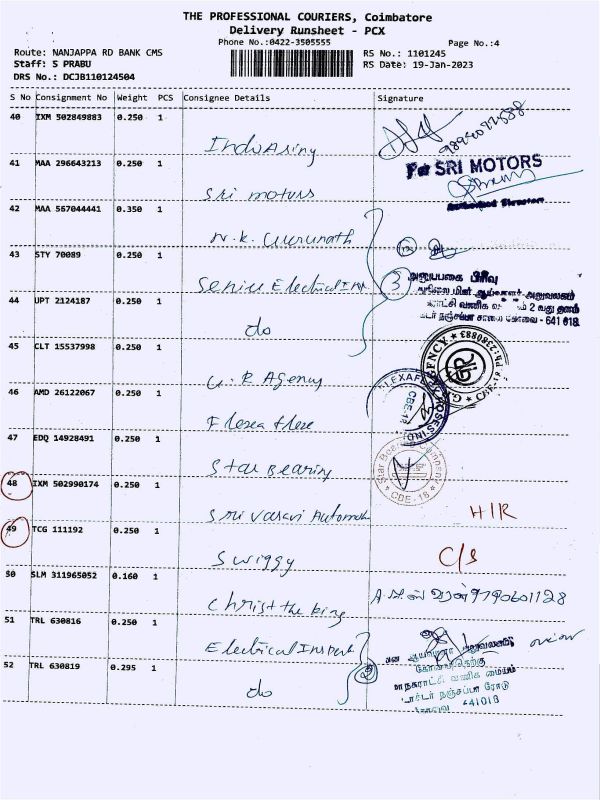 THE PROFESSIONAL COURIERS, Coimbatore
Delivery Runsheet - PCX
Phone No.:0422-3505555
Page No.:4
Route: NANJAPPA RD BANK CMS
RS No.: 1101245
Staff: S PRABU
RS Date: 19-Jan-2023
DRS No.: DCJB110124504
S No Consignment No Weight PCS Consignee Details Signature
40 IXM 502849883 0.250 1
41 MAA 296643213 0.250 1 For SRI MOTORS
Sri motors
42 MAA 567044441 0.350 1
N.K. Gurunath
43 STY 70089 0.250 1 அனுப்புகை பிரிவு
Senior Electrical 3
44 UPT 2124187 0.250 1 641 018
do
45 CLT 15537998 0.250 1
G.R Agency
46 AMD 26122067 0.250 1
47 EDQ 14928491 0.250 1
Star Bearing Star Bearing Company
48 IXM 502990174 0.250 1 CBE-18
H/R
49 TCG 111192 0.250 1
Swiggy C/S
50 SLM 311965052 0.160 1
Christ the king 9790601128
51 TRL 630816 0.250 1
Electrical
52 TRL 630819 0.295 1
do 641018